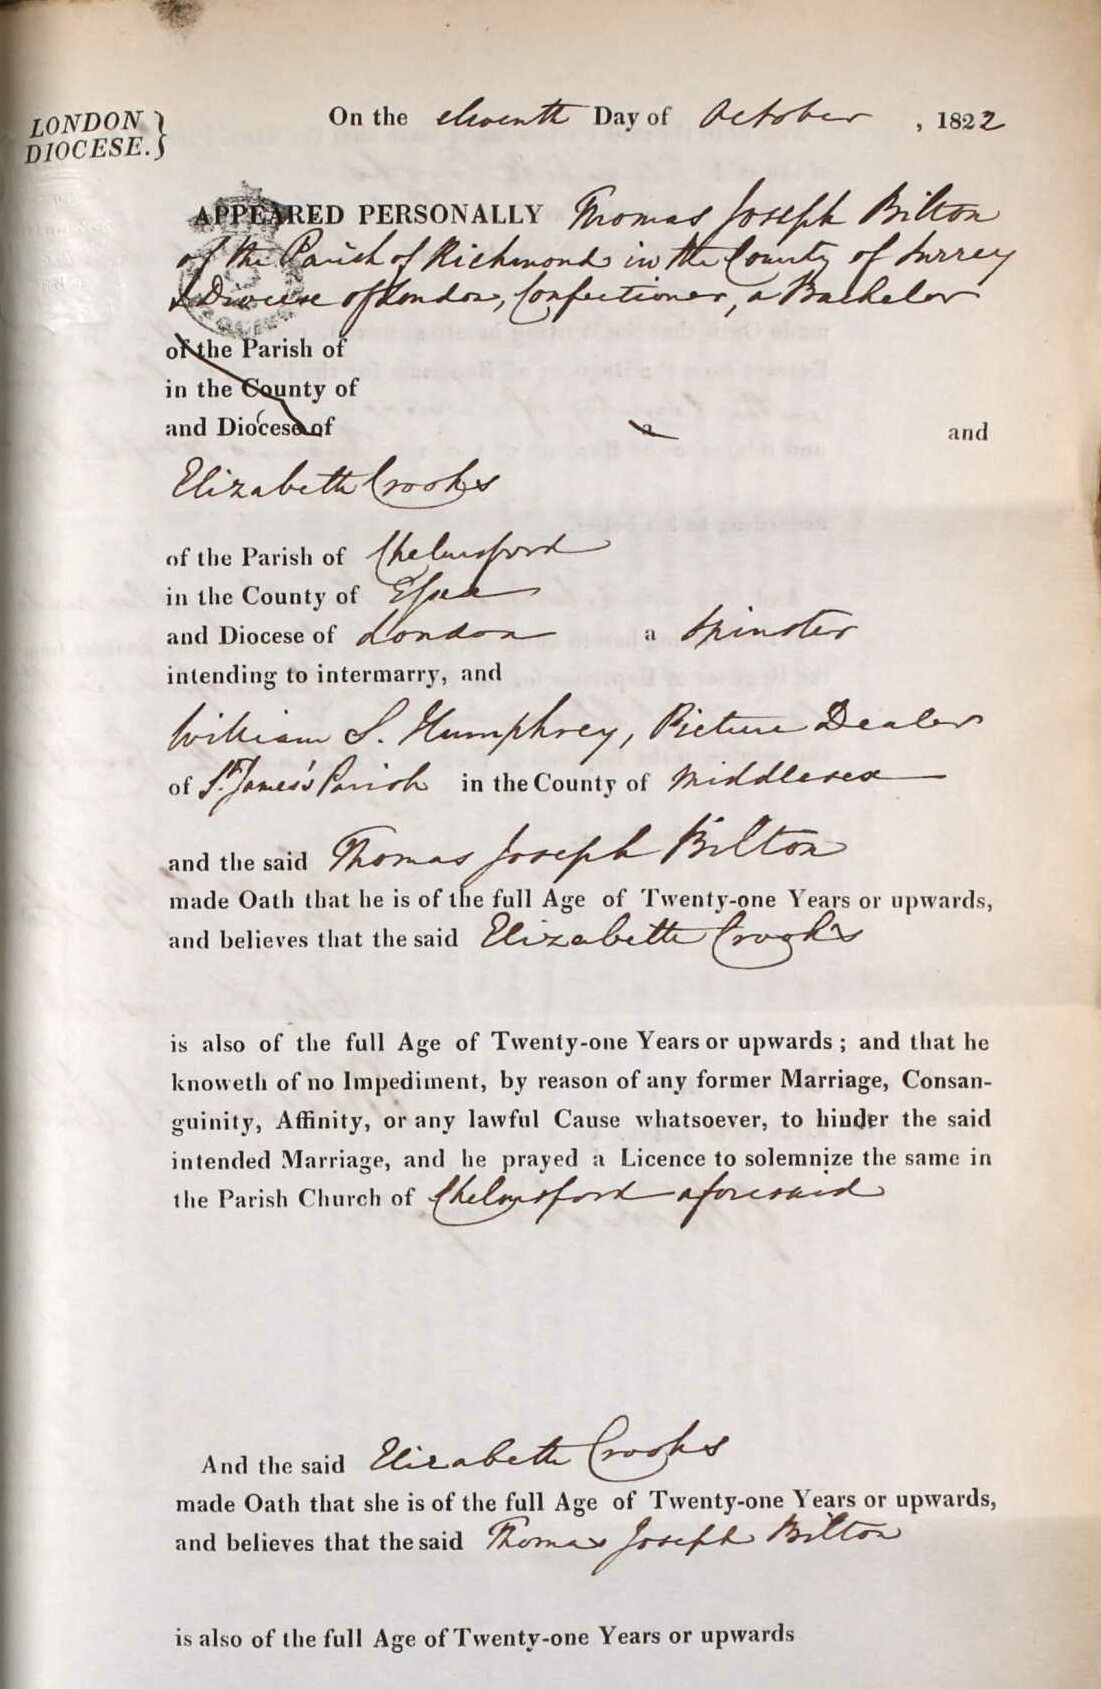 LONDON
DIOCESE.}
On the eleventh Day of October , 1822
APPEARED PERSONALLY Thomas Joseph Bilton
of the Parish of Richmond in the County of Surrey
& Diocese of London, Confectioner, a Bachelor
of the Parish of
in the County of
and Diocese of a and
Elizabeth Crooks
of the Parish of Chelmsford
in the County of Essex
and Diocese of London a Spinster
intending to intermarry, and
William S. Humphrey, Picture Dealer
of St. James's Parish in the County of Middlesex
and the said Thomas Joseph Bilton
made Oath that he is of the full Age of Twenty-one Years or upwards,
and believes that the said Elizabeth Crooks
is also of the full Age of Twenty-one Years or upwards ; and that he
knoweth of no Impediment, by reason of any former Marriage, Consan-
guinity, Affinity, or any lawful Cause whatsoever, to hinder the said
intended Marriage, and he prayed a Licence to solemnize the same in
the Parish Church of Chelmsford aforesaid
And the said Elizabeth Crooks
made Oath that she is of the full Age of Twenty-one Years or upwards,
and believes that the said Thomas Joseph Bilton
is also of the full Age of Twenty-one Years or upwards